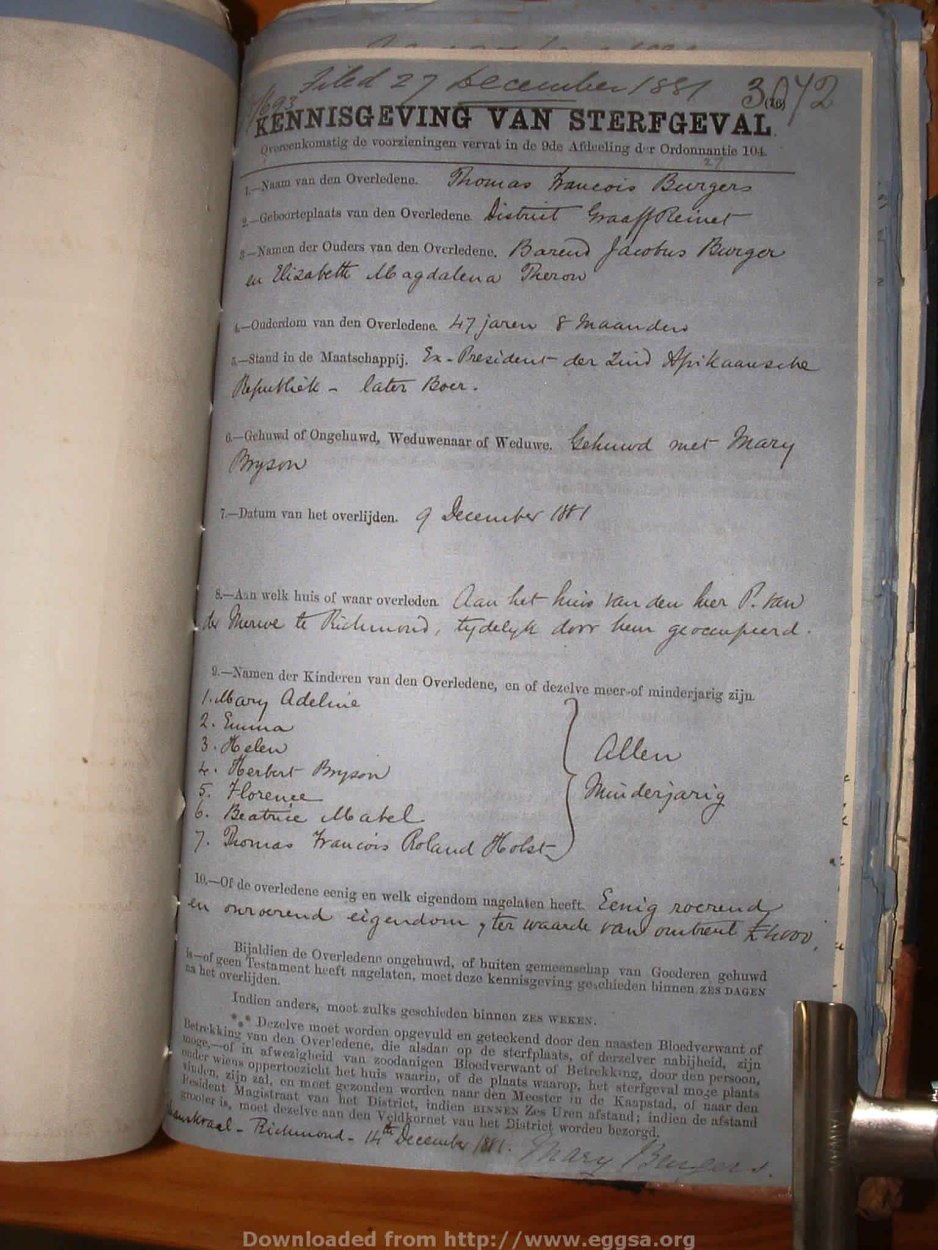 Filed 27 December 1881
KENNISGEVING VAN STERFGEVAL.
Overeenkomstig de voorzieningen vervat in de 9de Afdeeling der Ordonnantie 104.
1.—Naam van den Overledene. Thomas Francois Burgers
2.—Geboorteplaats van den Overledene. District Graaff Reinet
3.—Namen der Ouders van den Overledene. Barend Jacobus Burger
en Elizabeth Magdalena Theron
4.—Ouderdom van den Overledene. 47 jaren 8 Maanden
5.—Stand in de Maatschappij. Ex-President der Zuid Afrikaansche
Republiek - later Boer.
6.—Gehuwd of Ongehuwd, Weduwenaar of Weduwe. Gehuwd met Mary
Bryson
7.—Datum van het overlijden. 9 December 1881
8.—Aan welk huis of waar overleden. Aan het huis van den heer P. van
der Merwe te Richmond, tydelyk door hem geoccupeerd.
9.—Namen der Kinderen van den Overledene, en of dezelve meer-of minderjarig zijn.
1. Mary Adeline
2. Emma
3. Helen
4. Herbert Bryson
5. Florence
6. Beatrice Mabel
7. Thomas Francois Roland Holst
Allen
Minderjarig
10.—Of de overledene eenig en welk eigendom nagelaten heeft. Eenig roerend
en onroerend eigendom, ter waarde van omtrent
Bijaldien de Overledene ongehuwd, of buiten gemeenschap van Goederen gehuwd
is—of geen Testament heeft nagelaten, moet deze kennisgeving geschieden binnen ZES DAGEN
na het overlijden.
Indien anders, moet zulks geschieden binnen ZES WEKEN.
*** Dezelve moet worden opgevuld en geteekend door den naasten Bloedverwant of
Betrekking van den Overledene, die alsdan op de sterfplaats, of derzelver nabijheid, zijn
moge,—of in afwezigheid van zoodanigen Bloedverwant of Betrekking, door den persoon,
onder wiens oppertoezicht het huis waarin, of de plaats waarop, het sterfgeval moge plaats
vinden, zijn zal, en moet gezonden worden naar den Meester in de Kaapstad, of naar den
Resident Magistraat van het District, indien BINNEN Zes Uren afstand; indien de afstand
grooter is, moet dezelve aan den Veldkornet van het District worden bezorgd.
Richmond - 14th December 1881. Mary Burgers.
Downloaded from http://www.eggsa.org